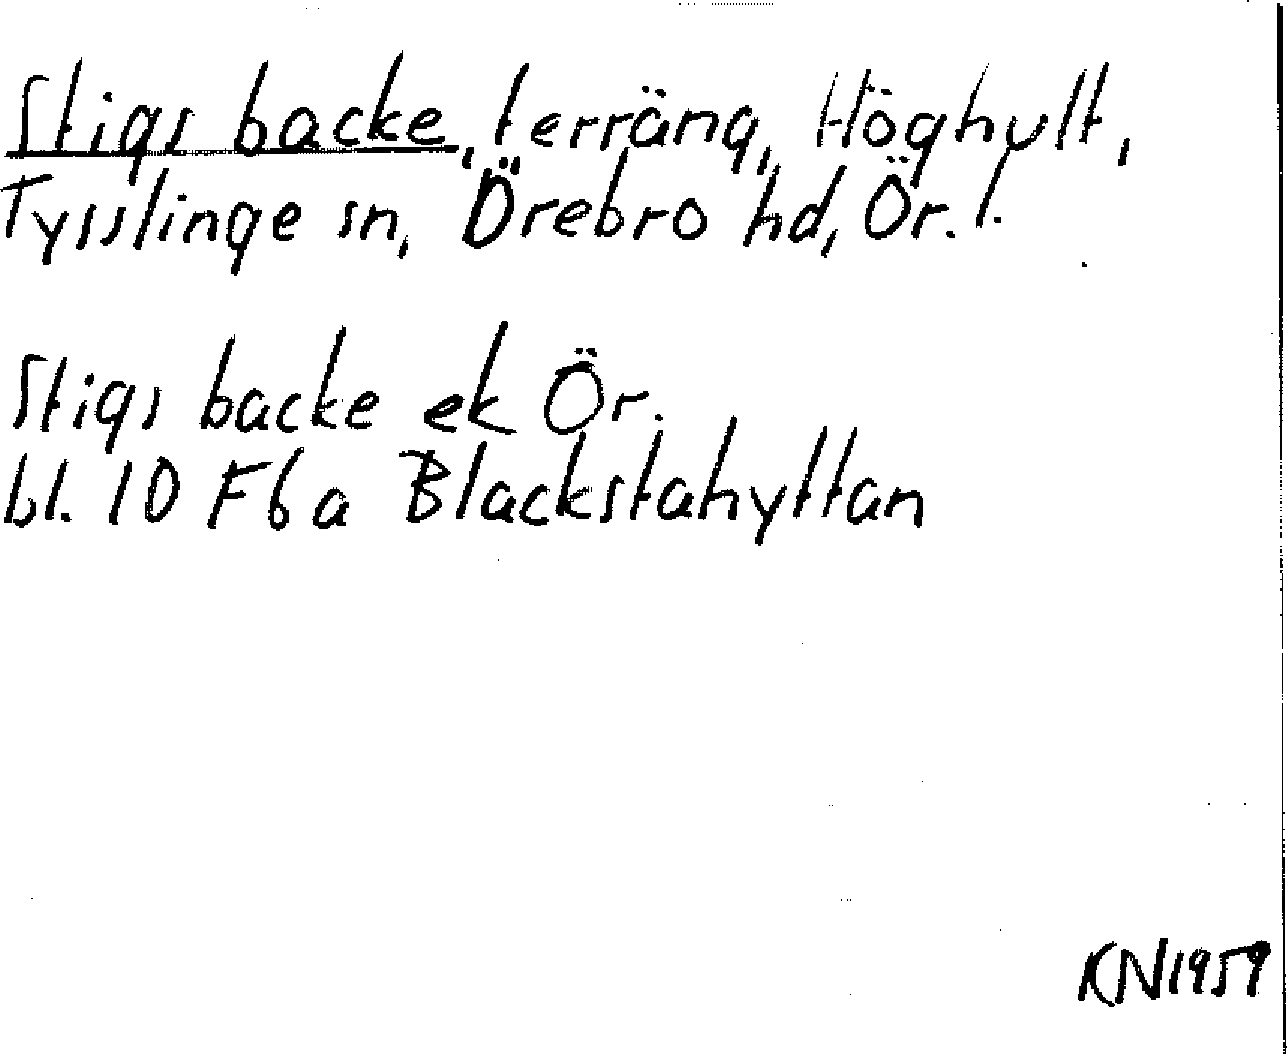 Stigs backe, terräng, Höghult,
Tysslinge sn, Örebro hd, Ör. l.
Stigs backe ek Ör.
bl. 10 F6a Blackstahyttan
KN1959